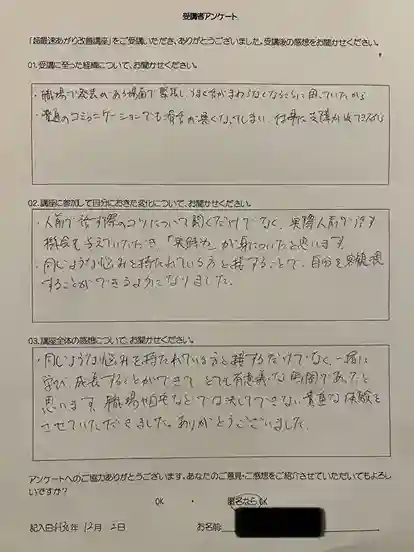 受講者アンケート
「超最速あがり改善講座」をご受講いただき、ありがとうございました。受講後の感想をお聞かせください。
01.受講に至った経緯について、お聞かせください。
・職場で発表がある場面で緊張し、うまく舌がまわらなくなることに困っていたから
・普通のコミュニケーションでも滑舌が悪くなってしまい、仕事に支障が
02.講座に参加して自分におきた変化について、お聞かせください。
・人前で話す際のコツについて聞くだけでなく、実際人前で話す
機会を与えていただき、「実践力」が身についたと思います。
・同じような悩みを持たれている方と接することで、自分を客観視
することができるようになりました。
03.講座全体の感想について、お聞かせください。
・同じような悩みを持たれている方と接するだけでなく、一緒に
学び成長することができて、とても有意義な時間であったと
思います。職場や自宅などでは決してできない貴重な体験を
させていただきました。ありがとうございました。
アンケートへのご協力ありがとうございます。あなたのご意見・ご感想をご紹介させていただいてもよろし
いですか?
OK ・ 匿名ならOK
記入日 12月 2日 お名前